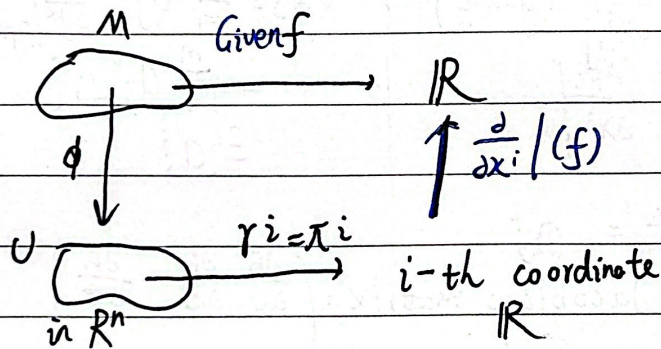 M
Given f
ℝ
ϕ
∂/∂xⁱ | (f)
U
rⁱ = πⁱ
i-th coordinate
in ℝⁿ
ℝ